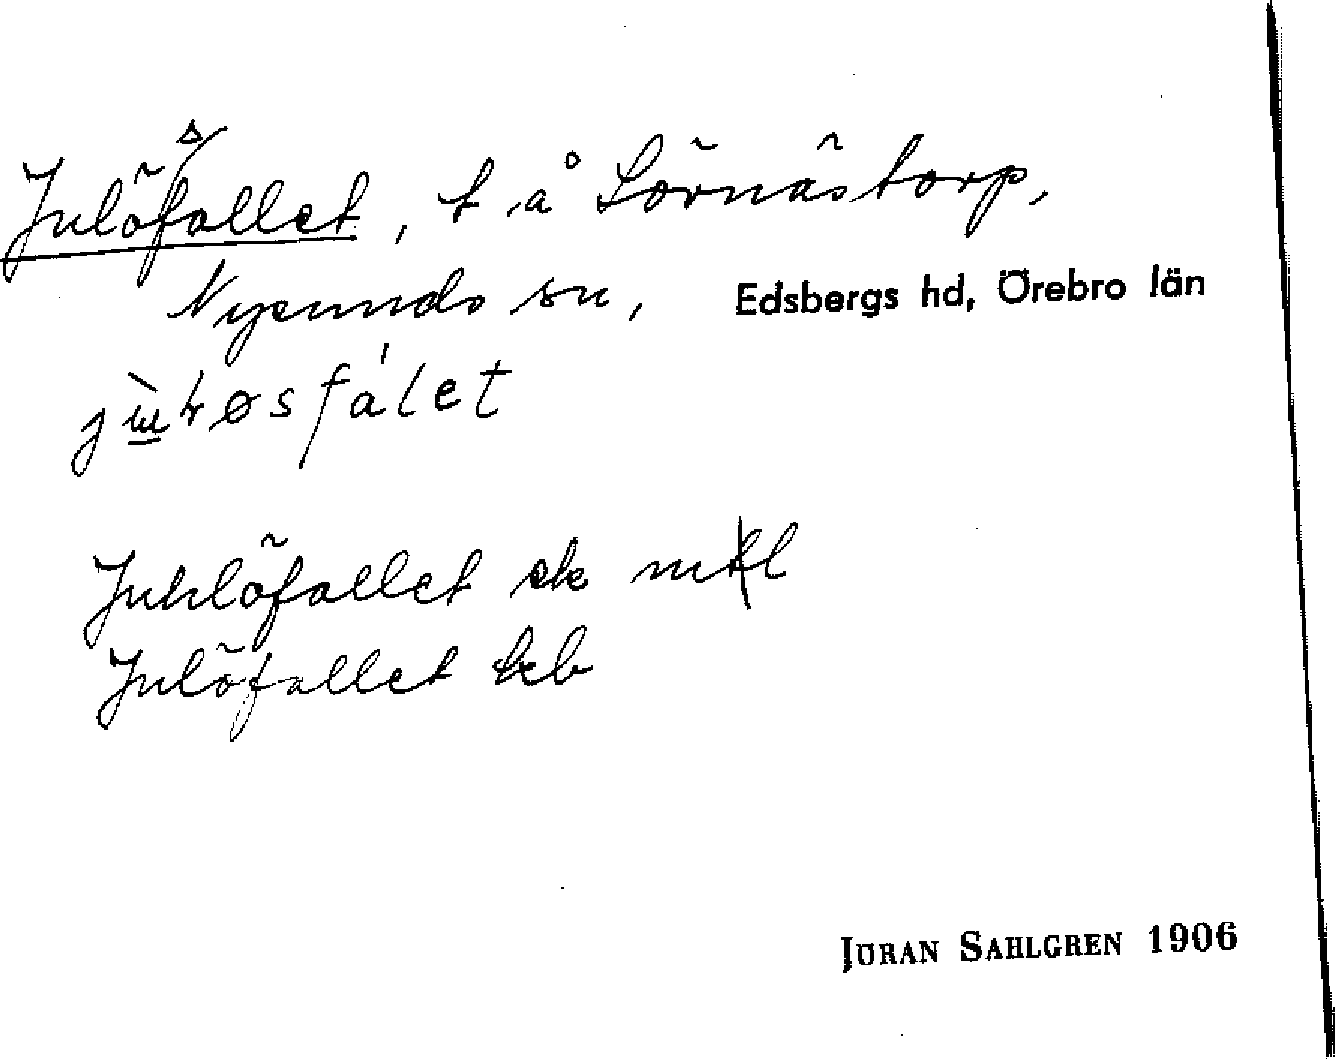 Julöfallet, t å Sörnästorp,
Nysunds sn, Edsbergs hd, Örebro län
Juhlöfallet ek
Julöfallet
JÖRAN SAHLGREN 1906